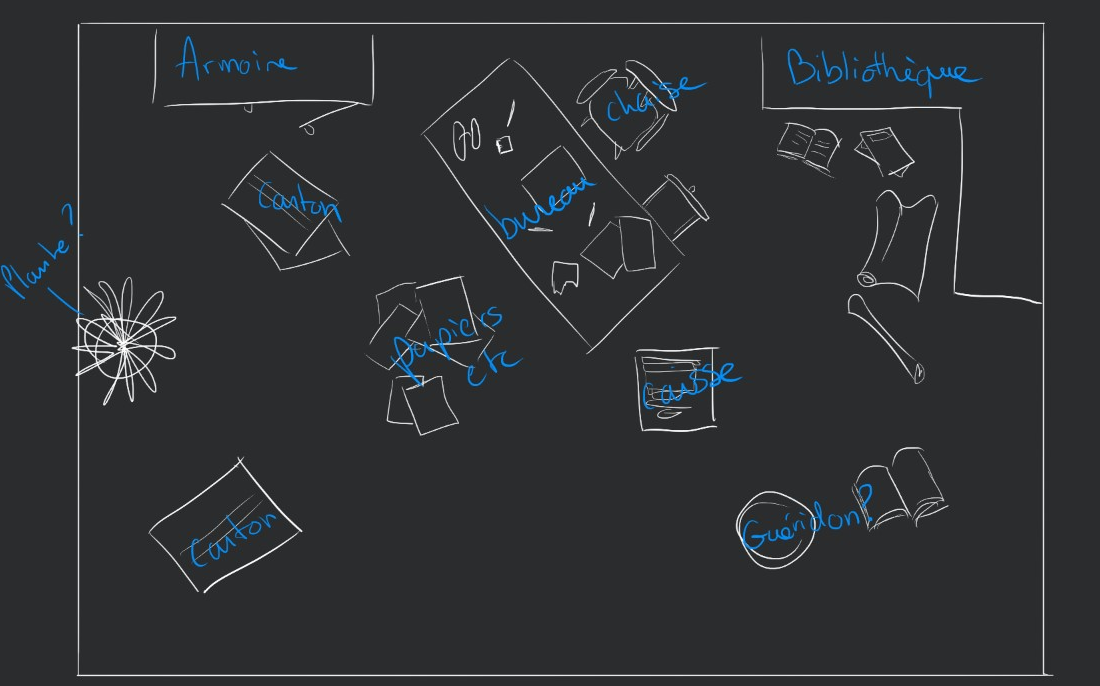 Armoire
Bibliothèque
chaise
Carton
bureau
Plante ?
papiers
etc
caisse
Carton
Guéridon?